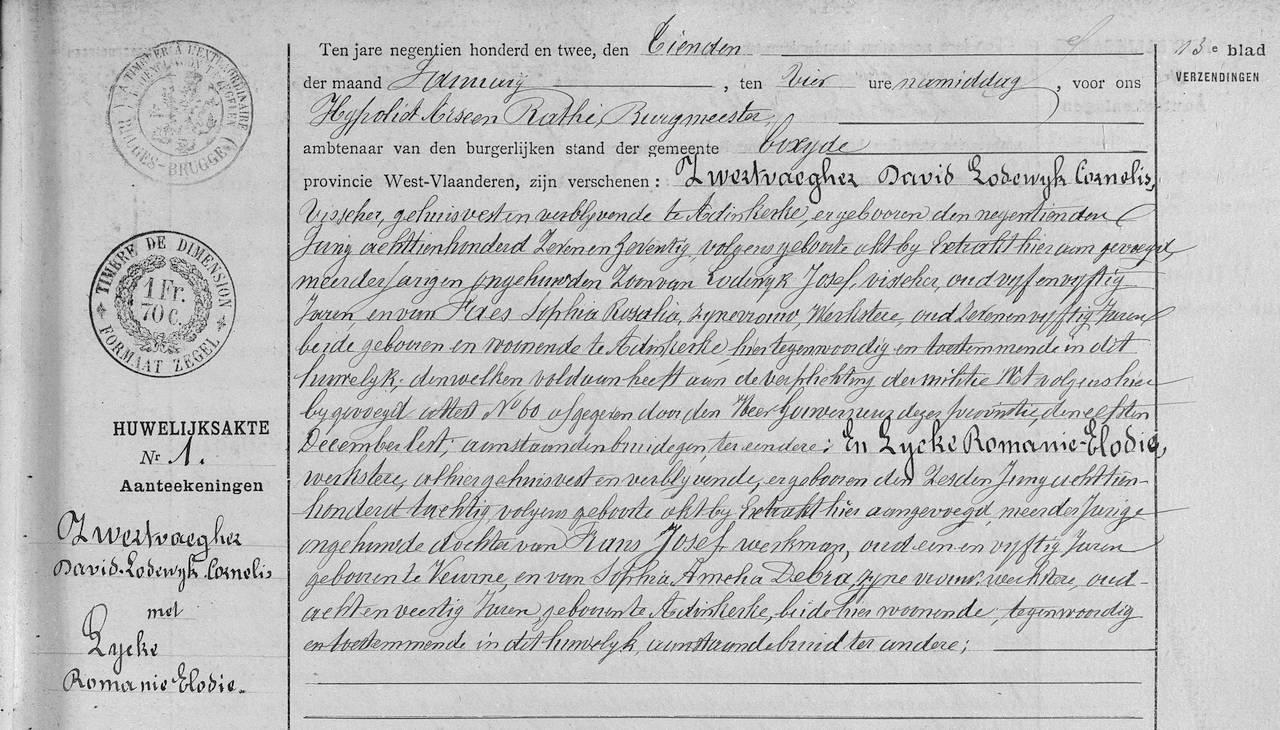 TIMBRE À L'EXTRAORDINAIRE
BRUGES-BRUGGE
TIMBRE DE DIMENSION
1 Fr.
70 C.
FORMAAT ZEGEL
HUWELIJKSAKTE
Nr 1.
Aanteekeningen
Zwertvaegher
David-Lodewyk Cornelis,
met
Lycke
Romanie-Elodie.
Ten jare negentien honderd en twee, den Tienden
der maand January, ten vier ure namiddag, voor ons
Hypoliet Rathé, Burgmeester,
ambtenaar van den burgerlijken stand der gemeente Coxyde
provincie West-Vlaanderen, zijn verschenen: Zwertvaegher David Lodewyk Cornelis,
Visscher, gehuisvest en verblyvende te Adinkerke, er gebooren den negentienden
Juny achttienhonderd zeven en zeventig, volgens geboorte akt by Extrakt hier aan gevoegd
meerderjarigen ongehuwden Zoon van Lodewyk Josef, visscher, oud vyf en vyftig
Jaren, en van Faes Sophia Rosalia, zyne vrouw, Werkstere, oud zeven en vyftig Jaren
beide gebooren en woonende te Adinkerke, hier tegenwoordig en toestemmende in dit
huwelyk; denwelken voldaan heeft aan de verplichting der militie Wet volgens hier
by gevoegd attest No 60 afgegeven door den Heer Gouverneur dezer provintie, den elfsten
December lest; aanstaanden bruidegom ter eendere: En Lycke Romanie-Elodie,
werkstere, alhier gehuisvest en verblyvende, er gebooren den Zesden Juny achttien-
honderd tachtig volgens geboorte akt by Extrakt hier aangevoegd, meerderjarige
ongehuwde dochter van Frans Josef werkman, oud een en vyftig Jaren
gebooren te Veurne, en van Sophia Amelia Debra, zyne vrouw, werkstere, oud
acht en veertig Jaren, gebooren te Adinkerke, beide hier woonende, tegenwoordig
en toestemmende in dit huwelyk, aanstaande bruid ter andere;
13e blad
VERZENDINGEN